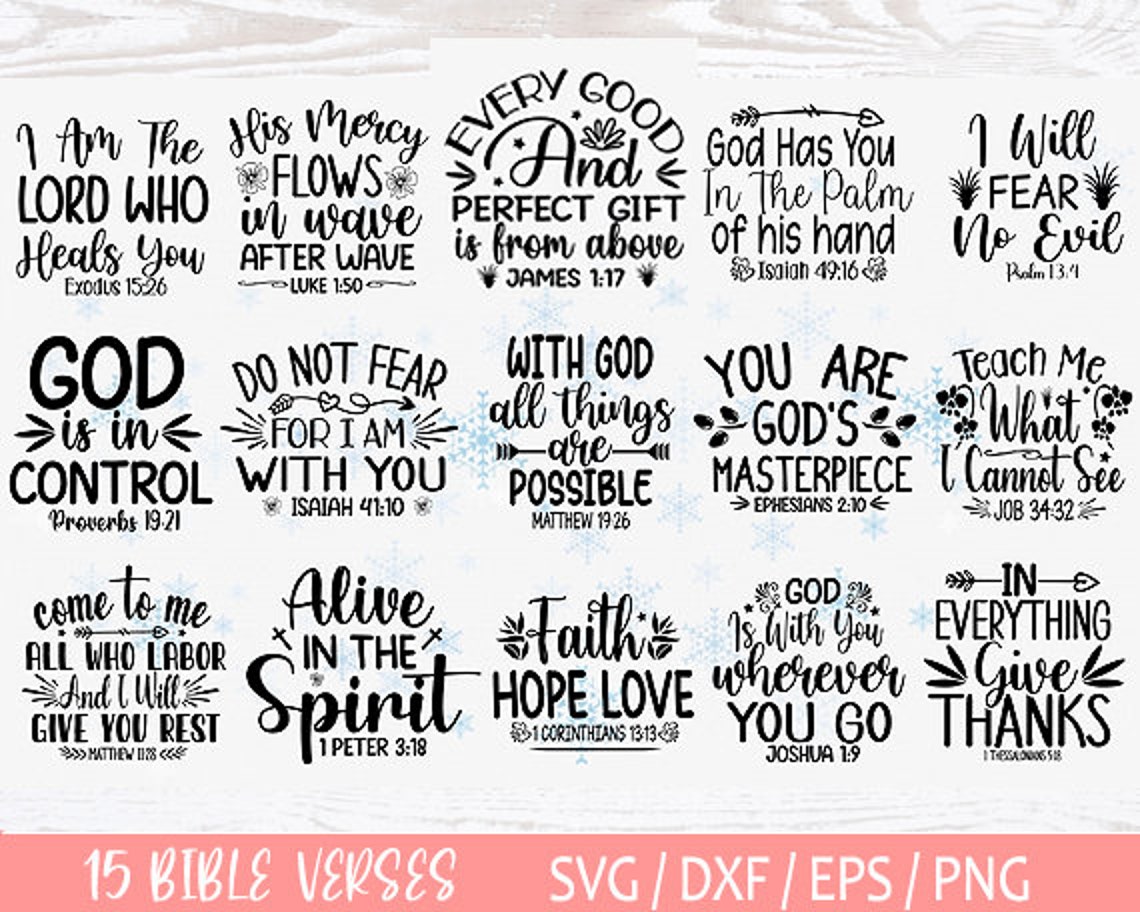 I Am The
LORD WHO
Heals You
Exodus 15:26
His Mercy
FLOWS
in wave
AFTER WAVE
LUKE 1:50
EVERY GOOD
And
PERFECT GIFT
is from above
JAMES 1:17
God Has You
In The Palm
of his hand
Isaiah 49:16
I Will
FEAR
No Evil
Psalm 13:4
GOD
is in
CONTROL
Proverbs 19:21
DO NOT FEAR
FOR I AM
WITH YOU
ISAIAH 41:10
WITH GOD
all things
are
POSSIBLE
MATTHEW 19:26
YOU ARE
GOD'S
MASTERPIECE
EPHESIANS 2:10
Teach Me
What
I Cannot See
JOB 34:32
come to me
ALL WHO LABOR
And I Will
GIVE YOU REST
MATTHEW 11:28
Alive
IN THE
Spirit
1 PETER 3:18
Faith
HOPE LOVE
1 CORINTHIANS 13:13
GOD
Is With You
wherever
YOU GO
JOSHUA 1:9
IN
EVERYTHING
Give
THANKS
1 THESSALONIANS 5:18
15 BIBLE VERSES
SVG / DXF / EPS / PNG